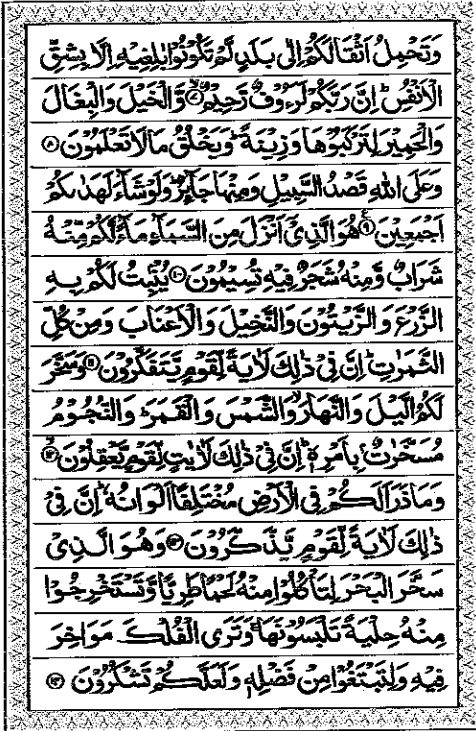 وَتَحْمِلُ اَثْقَالَكُمْ اِلٰى بَلَدٍ لَّمْ تَكُوْنُوْا بٰلِغِيْهِ اِلَّا بِشِقِّ
الْاَنْفُسِ ؕ اِنَّ رَبَّكُمْ لَرَءُوْفٌ رَّحِيْمٌ ۙ﴿۷﴾ وَّالْخَيْلَ وَالْبِغَالَ
وَالْحَمِيْرَ لِتَرْكَبُوْهَا وَزِيْنَةً ؕ وَيَخْلُقُ مَا لَا تَعْلَمُوْنَ ﴿۸﴾
وَعَلَى اللّٰهِ قَصْدُ السَّبِيْلِ وَمِنْهَا جَآئِرٌ ؕ وَلَوْ شَآءَ لَهَدٰىكُمْ
اَجْمَعِيْنَ ﴿۹﴾ هُوَ الَّذِيْۤ اَنْزَلَ مِنَ السَّمَآءِ مَآءً لَّكُمْ مِّنْهُ
شَرَابٌ وَّمِنْهُ شَجَرٌ فِيْهِ تُسِيْمُوْنَ ﴿۱۰﴾ يُنْۢبِتُ لَكُمْ بِهِ
الزَّرْعَ وَالزَّيْتُوْنَ وَالنَّخِيْلَ وَالْاَعْنَابَ وَمِنْ كُلِّ
الثَّمَرٰتِ ؕ اِنَّ فِيْ ذٰلِكَ لَاٰيَةً لِّقَوْمٍ يَّتَفَكَّرُوْنَ ﴿۱۱﴾ وَسَخَّرَ
لَكُمُ الَّيْلَ وَالنَّهَارَ ۙ وَالشَّمْسَ وَالْقَمَرَ ؕ وَالنُّجُوْمُ
مُسَخَّرٰتٌۢ بِاَمْرِهٖ ؕ اِنَّ فِيْ ذٰلِكَ لَاٰيٰتٍ لِّقَوْمٍ يَّعْقِلُوْنَ ۙ﴿۱۲﴾
وَمَا ذَرَاَ لَكُمْ فِى الْاَرْضِ مُخْتَلِفًا اَلْوَانُهٗ ؕ اِنَّ فِيْ
ذٰلِكَ لَاٰيَةً لِّقَوْمٍ يَّذَّكَّرُوْنَ ﴿۱۳﴾ وَهُوَ الَّذِيْ
سَخَّرَ الْبَحْرَ لِتَاْكُلُوْا مِنْهُ لَحْمًا طَرِيًّا وَّتَسْتَخْرِجُوْا
مِنْهُ حِلْيَةً تَلْبَسُوْنَهَا ۚ وَتَرَى الْفُلْكَ مَوَاخِرَ
فِيْهِ وَلِتَبْتَغُوْا مِنْ فَضْلِهٖ وَلَعَلَّكُمْ تَشْكُرُوْنَ ﴿۱۴﴾